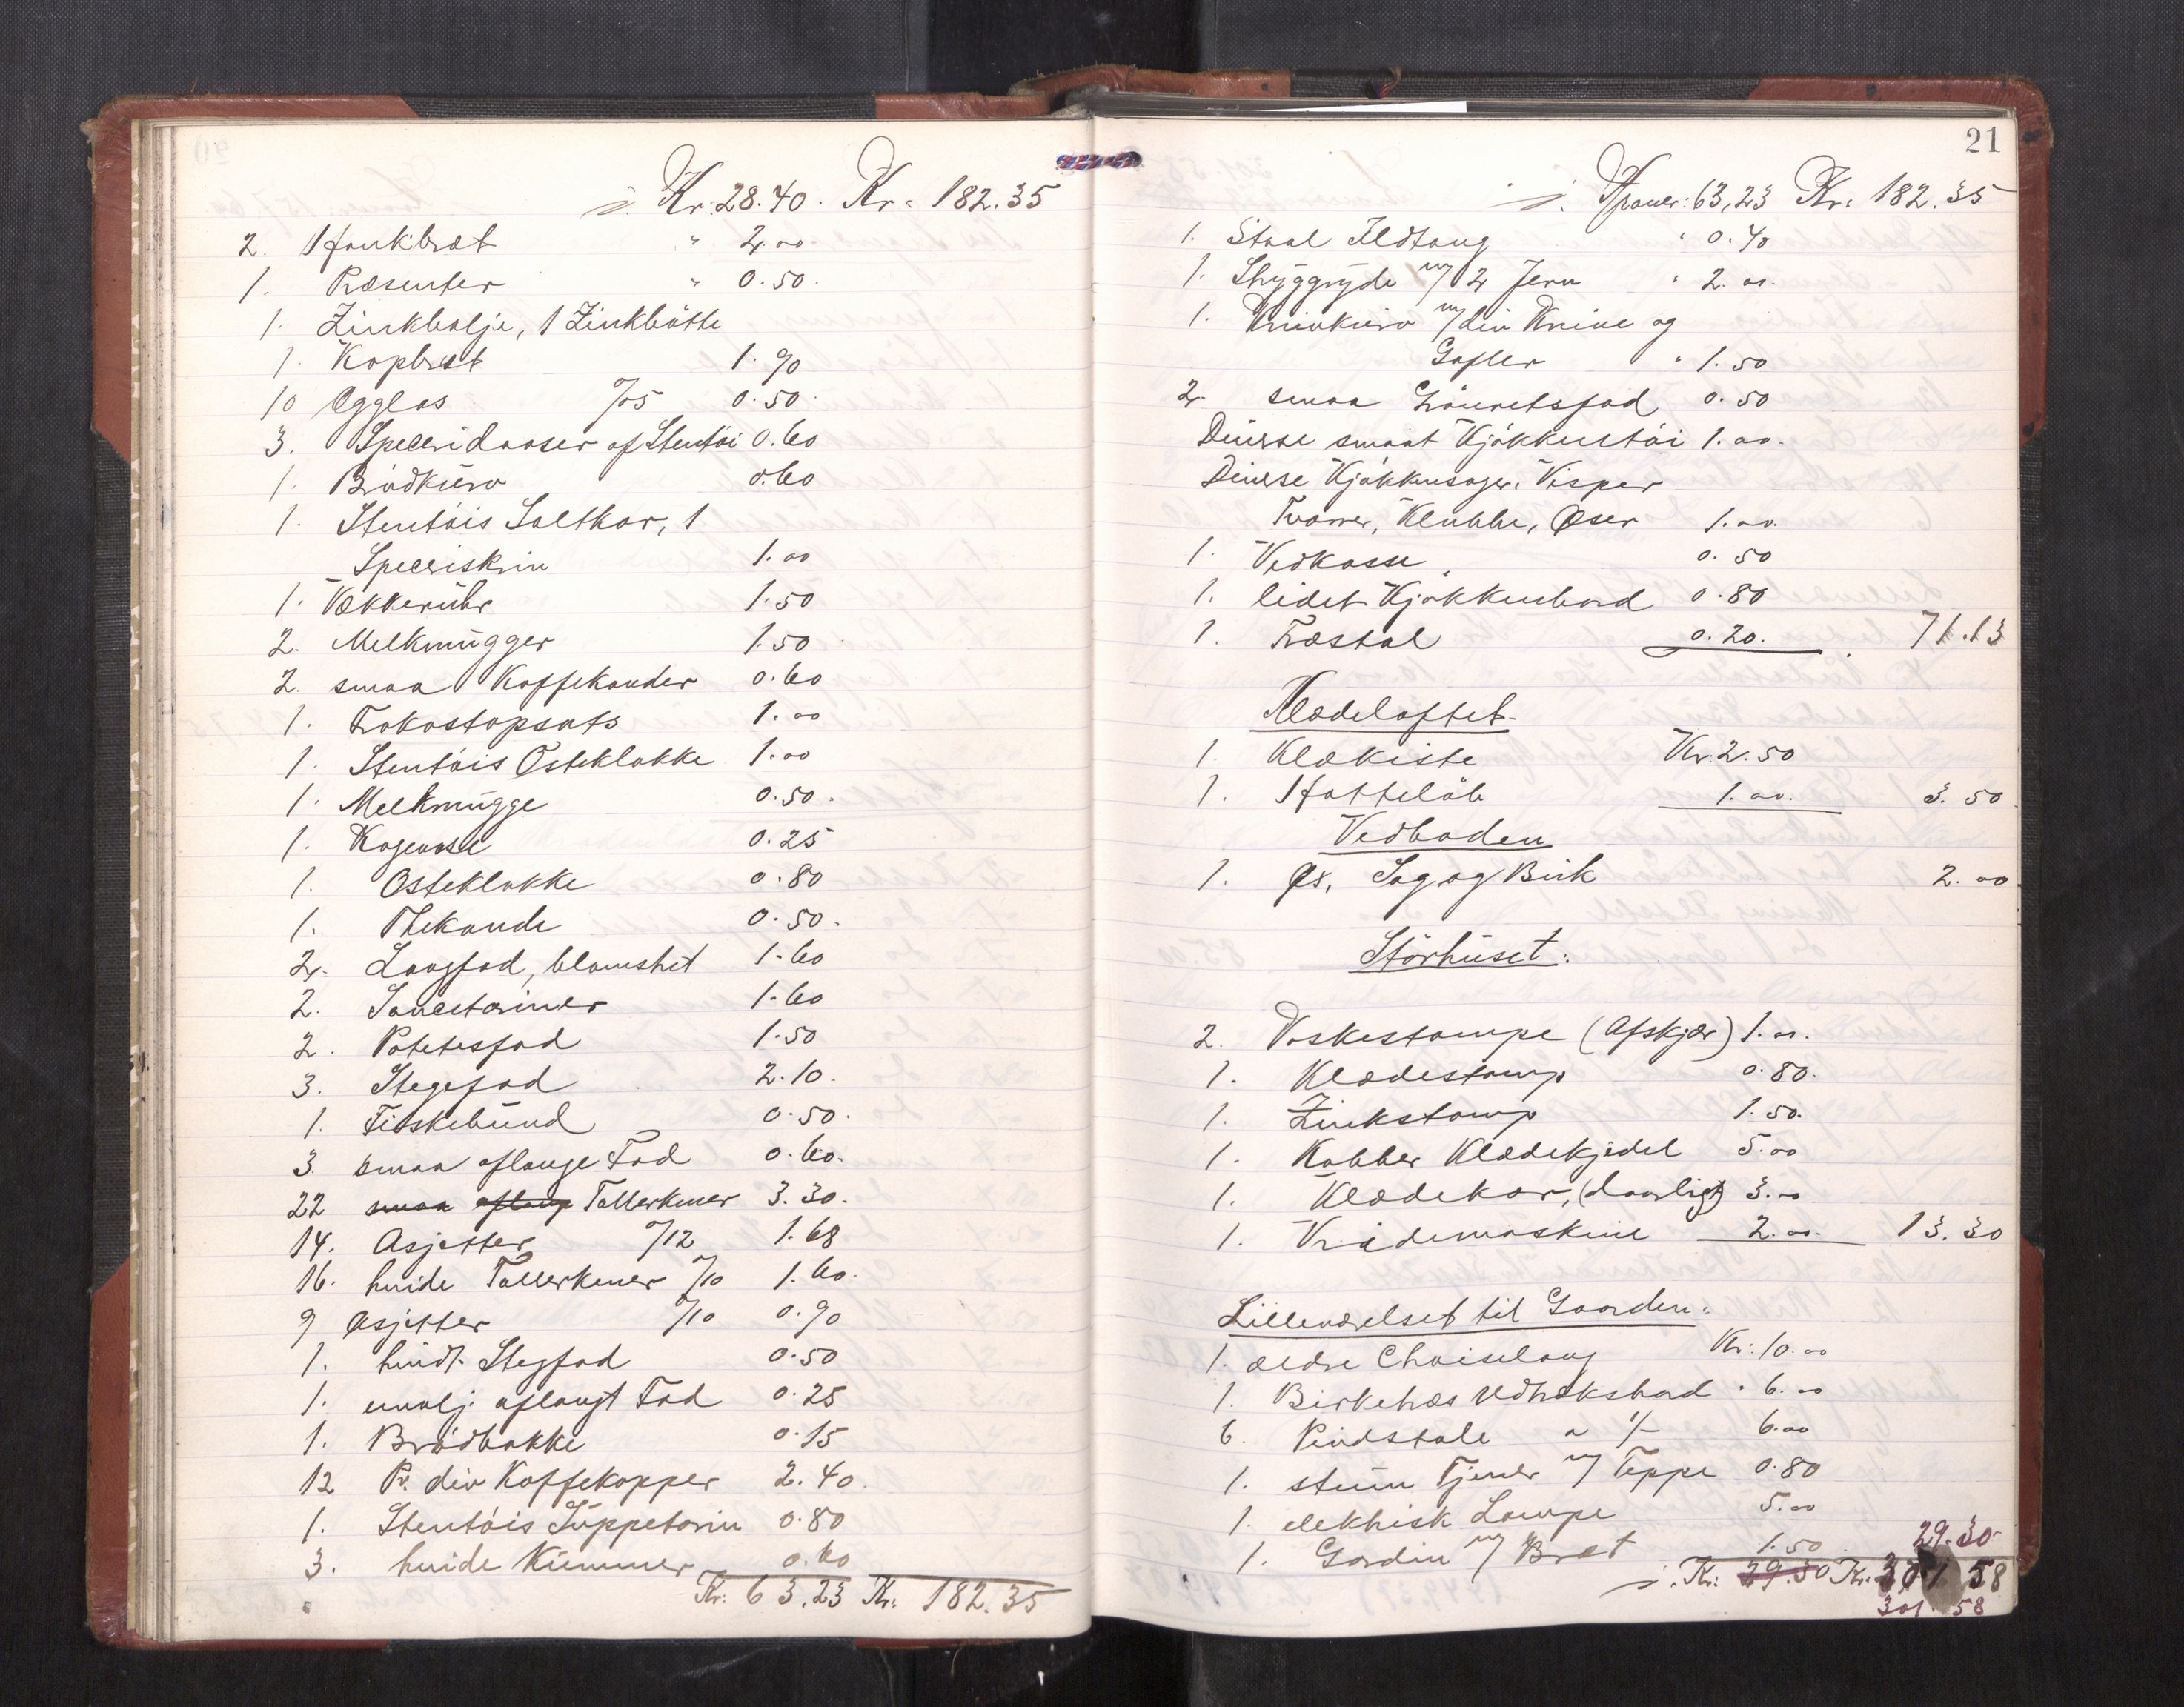 Kr: 28.40. Kr. 182.35
2. Hankbræt " 2.00
1. Presenter " 0.50.
1. Zinkbalje, 1 Zinkbøtte
1. Kopbræt 1.90
10 Ægglas a/05 0.50
3. Specridaaser af Stentøi 0.60
1. Brødkurv 0.60
1. Stentøis Saltkar, 1
Speceriskrin 1.00
1. Vækkeruhr 1.50
2. Melkmugger 1.50
2. smaa Kaffekander 0.60
1. Frokostopsats 1.00
1. Stentøis Osteklokke 1.00
1. Melkmugge 0.50.
1. Kagevase 0.25
1. Osteklokke 0.80
1. Thekande 0.50.
2. Langfad, blomstret 1.60
2. Saucetariner 1.60
2. Potetesfad 1.50
3. Stegefad 2.10.
1. Fiskebund 0.50.
3. smaa aflange Fad 0.60.
22 smaa aflange Tallerkener 3.30.
14. Asjetter a/12 1.68
16. hvide Tallerkener a/10 1.60.
9 Asjetter a/10 0.90
1. hvidt Stegfad 0.50
1. emalj. aflangt Fad 0.25
1. Brødbakke 0.15
12 Pr. div Kaffekopper 2.40
1. Stentøis Suppetarin 0.80
3. hvide Kummer 0.60
Kr: 63.23 Kr: 182.35
21
Kroner: 63,23 Kr: 182.35
1. Staal Ildtang " 0.40
1. Stryggryde m/ 2 Jern " 2.00.
1. Knivkurv m/ div Knive og
Gafler " 1.50
2. smaa Grønnetsfad 0.50
Diverse smaat Kjøkkentøi 1.00.
Diverse Kjøkkensager: Visper
Tvarrer, Klubbe, Øser 1.00.
1. Vedkasse 0.50
1. lidet Kjøkkenbord 0.80
1. Træstol 0.20. 71.13
Klædeloftet.
1. Klækiste Kr. 2.50
1. Hatteløb 1.00. 3.50
Vedboden
1. Øx, Sag og Buk 2.00
Størhuset:
2. Vaskestampe (Afskjær) 1.00.
1. Klædestamp 0.80.
1. Zinkstamp 1.50.
1. Kobber Klædekjedel 5.00
1. Klædekar, (daarligt) 3.00
1. Vridemaskine 2.00. 13.30
Lilleværelset til Gaarden:
1. ældre Chaiselong Kr: 10.00
1. Birketræs Udtræksbord " 6.00
6. Pindstole a 1/- 6.00
1. stum Tjener m/ Teppe 0.80
1. elektrisk Lampe 5.00
1. Gardin m/ Bræt 1.50 29.30
Kr: 29.30 Kr. 301 58
301. 58